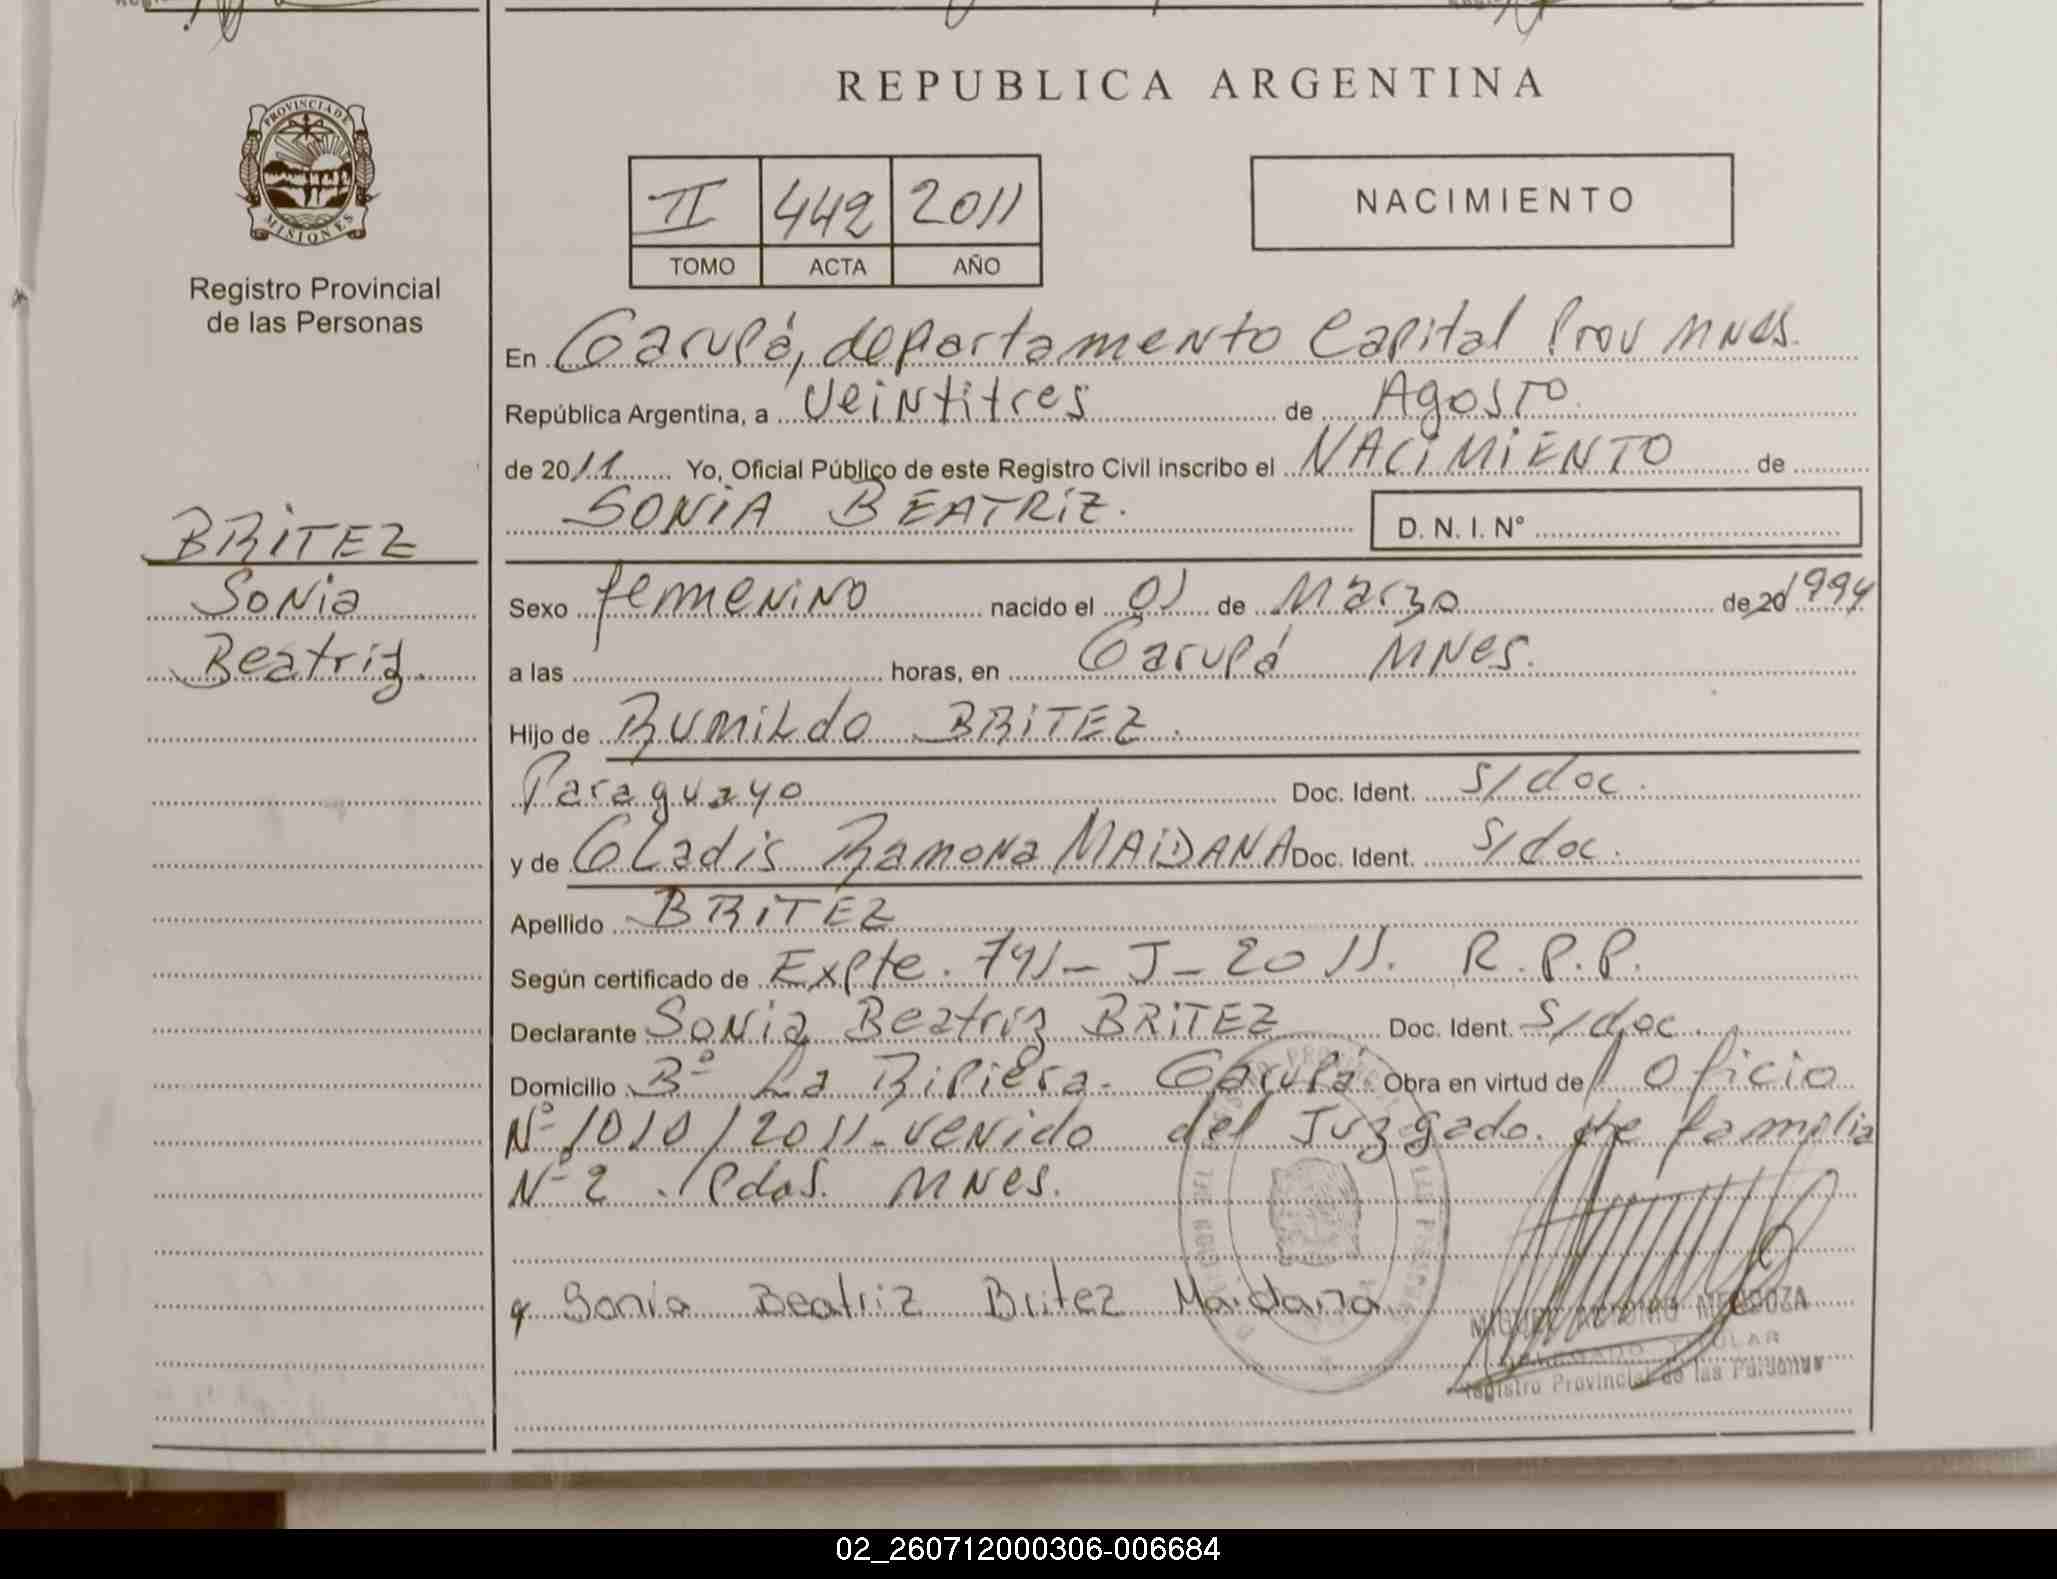 REPUBLICA ARGENTINA
PROVINCIA DE
MISIONES
Registro Provincial
de las Personas
II 442 2011
TOMO ACTA AÑO
NACIMIENTO
En Garupá, departamento Capital Prov Mnes.
República Argentina, a veintitres de Agosto
de 2011 Yo, Oficial Público de este Registro Civil inscribo el NACIMIENTO de
SONIA BEATRIZ.
D. N. I. N°
BRITEZ
Sonia
Beatriz.
Sexo femenino nacido el 01 de Marzo de 20 1994
a las horas, en Garupá Mnes.
Hijo de Rumildo BRITEZ.
Paraguayo Doc. Ident. s/doc.
y de Gladis Ramona MAIDANA Doc. Ident. s/doc.
Apellido BRITEZ
Según certificado de Expte. 791-J-2011. R.P.P.
Declarante Sonia Beatriz BRITEZ Doc. Ident. s/doc.
Domicilio Bº La Ripiera. Garupá Obra en virtud de Oficio
Nº 1010/2011-venido del Juzgado de familia
Nº 2. Pdas. Mnes.
Sonia Beatriz Britez Maidana
MIGUEL ANTONIO MENDOZA
DELEGADO TITULAR
Registro Provincial de las Personas
02_260712000306-006684